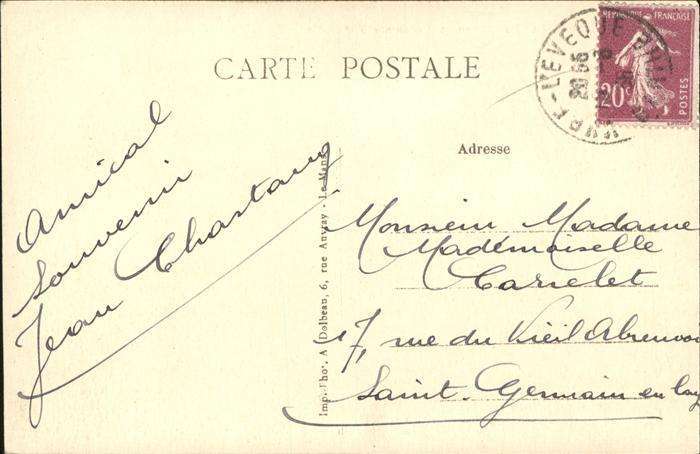 CARTE POSTALE
RÉPUBLIQUE FRANÇAISE
20c
POSTES
L'EVEQUE
20 35
Adresse
Amical
Souvenir
Jean Chastang
Imp. Phot. A. Dolbeau, 6, rue Auvray - Le Mans
Monsieur Madame
Mademoiselle
Carrelet
17, rue du Vieil Abreuvoir
Saint-Germain en Lay